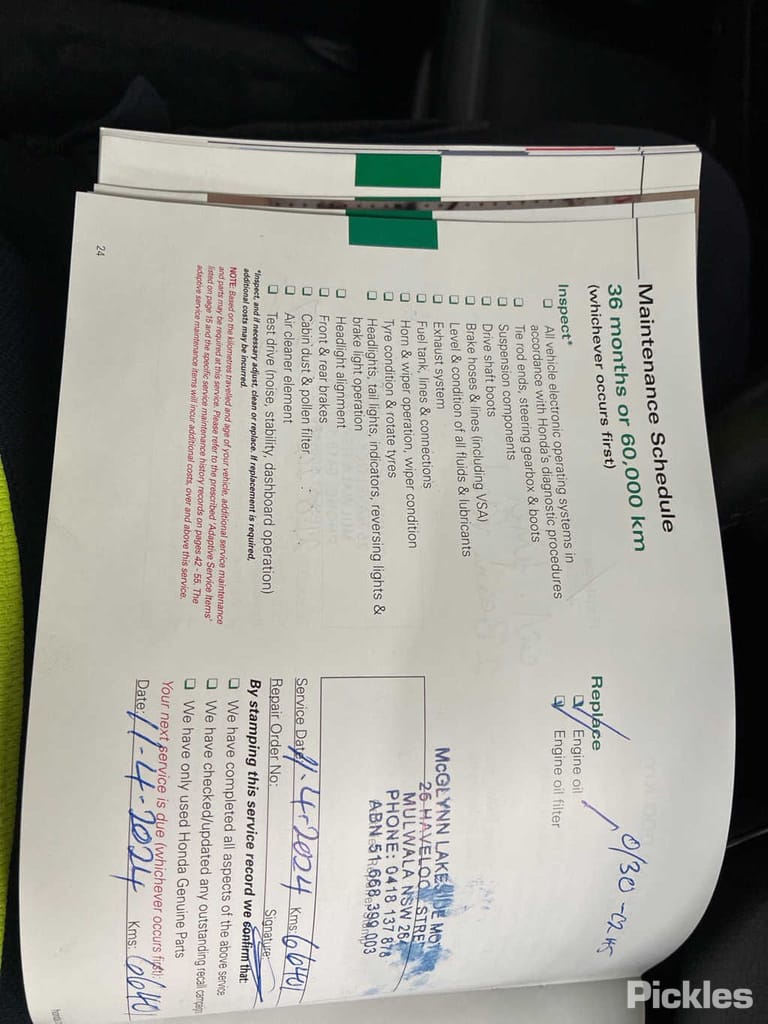 Maintenance Schedule
36 months or 60,000 km
(whichever occurs first)
Inspect*
All vehicle electronic operating systems in
accordance with Honda's diagnostic procedures
Tie rod ends, steering gearbox & boots
Suspension components
Drive shaft boots
Brake hoses & lines (including VSA)
Level & condition of all fluids & lubricants
Exhaust system
Fuel tank, lines & connections
Horn & wiper operation, wiper condition
Tyre condition & rotate tyres
Headlights, tail lights, indicators, reversing lights &
brake light operation
Headlight alignment
Front & rear brakes
Cabin dust & pollen filter
Air cleaner element
Test drive (noise, stability, dashboard operation)
*Inspect, and if necessary adjust, clean or replace. If replacement is required,
additional costs may be incurred.
NOTE: Based on the kilometres travelled and age of your vehicle, additional service maintenance
and parts may be required at this service. Please refer to the prescribed 'Adaptive Service Items'
listed on page 15 and the specific service maintenance history records on pages 42 - 55. The
adaptive service maintenance items will incur additional costs, over and above this service.
24
Replace
Engine oil
Engine oil filter
0/30
McGLYNN LAKESIDE MO
26 HAVELOC STRE
MULWALA NSW 26
PHONE: 0418 137 878
ABN 51 668 399 003
Service Date: 11-4-2024 Kms: 66401
Repair Order No: Signature:
By stamping this service record we confirm that:
We have completed all aspects of the above service
We have checked/updated any outstanding recall campaign
We have only used Honda Genuine Parts
Your next service is due (whichever occurs first):
Date: 11-4-2024 Kms: 66401
Pickles